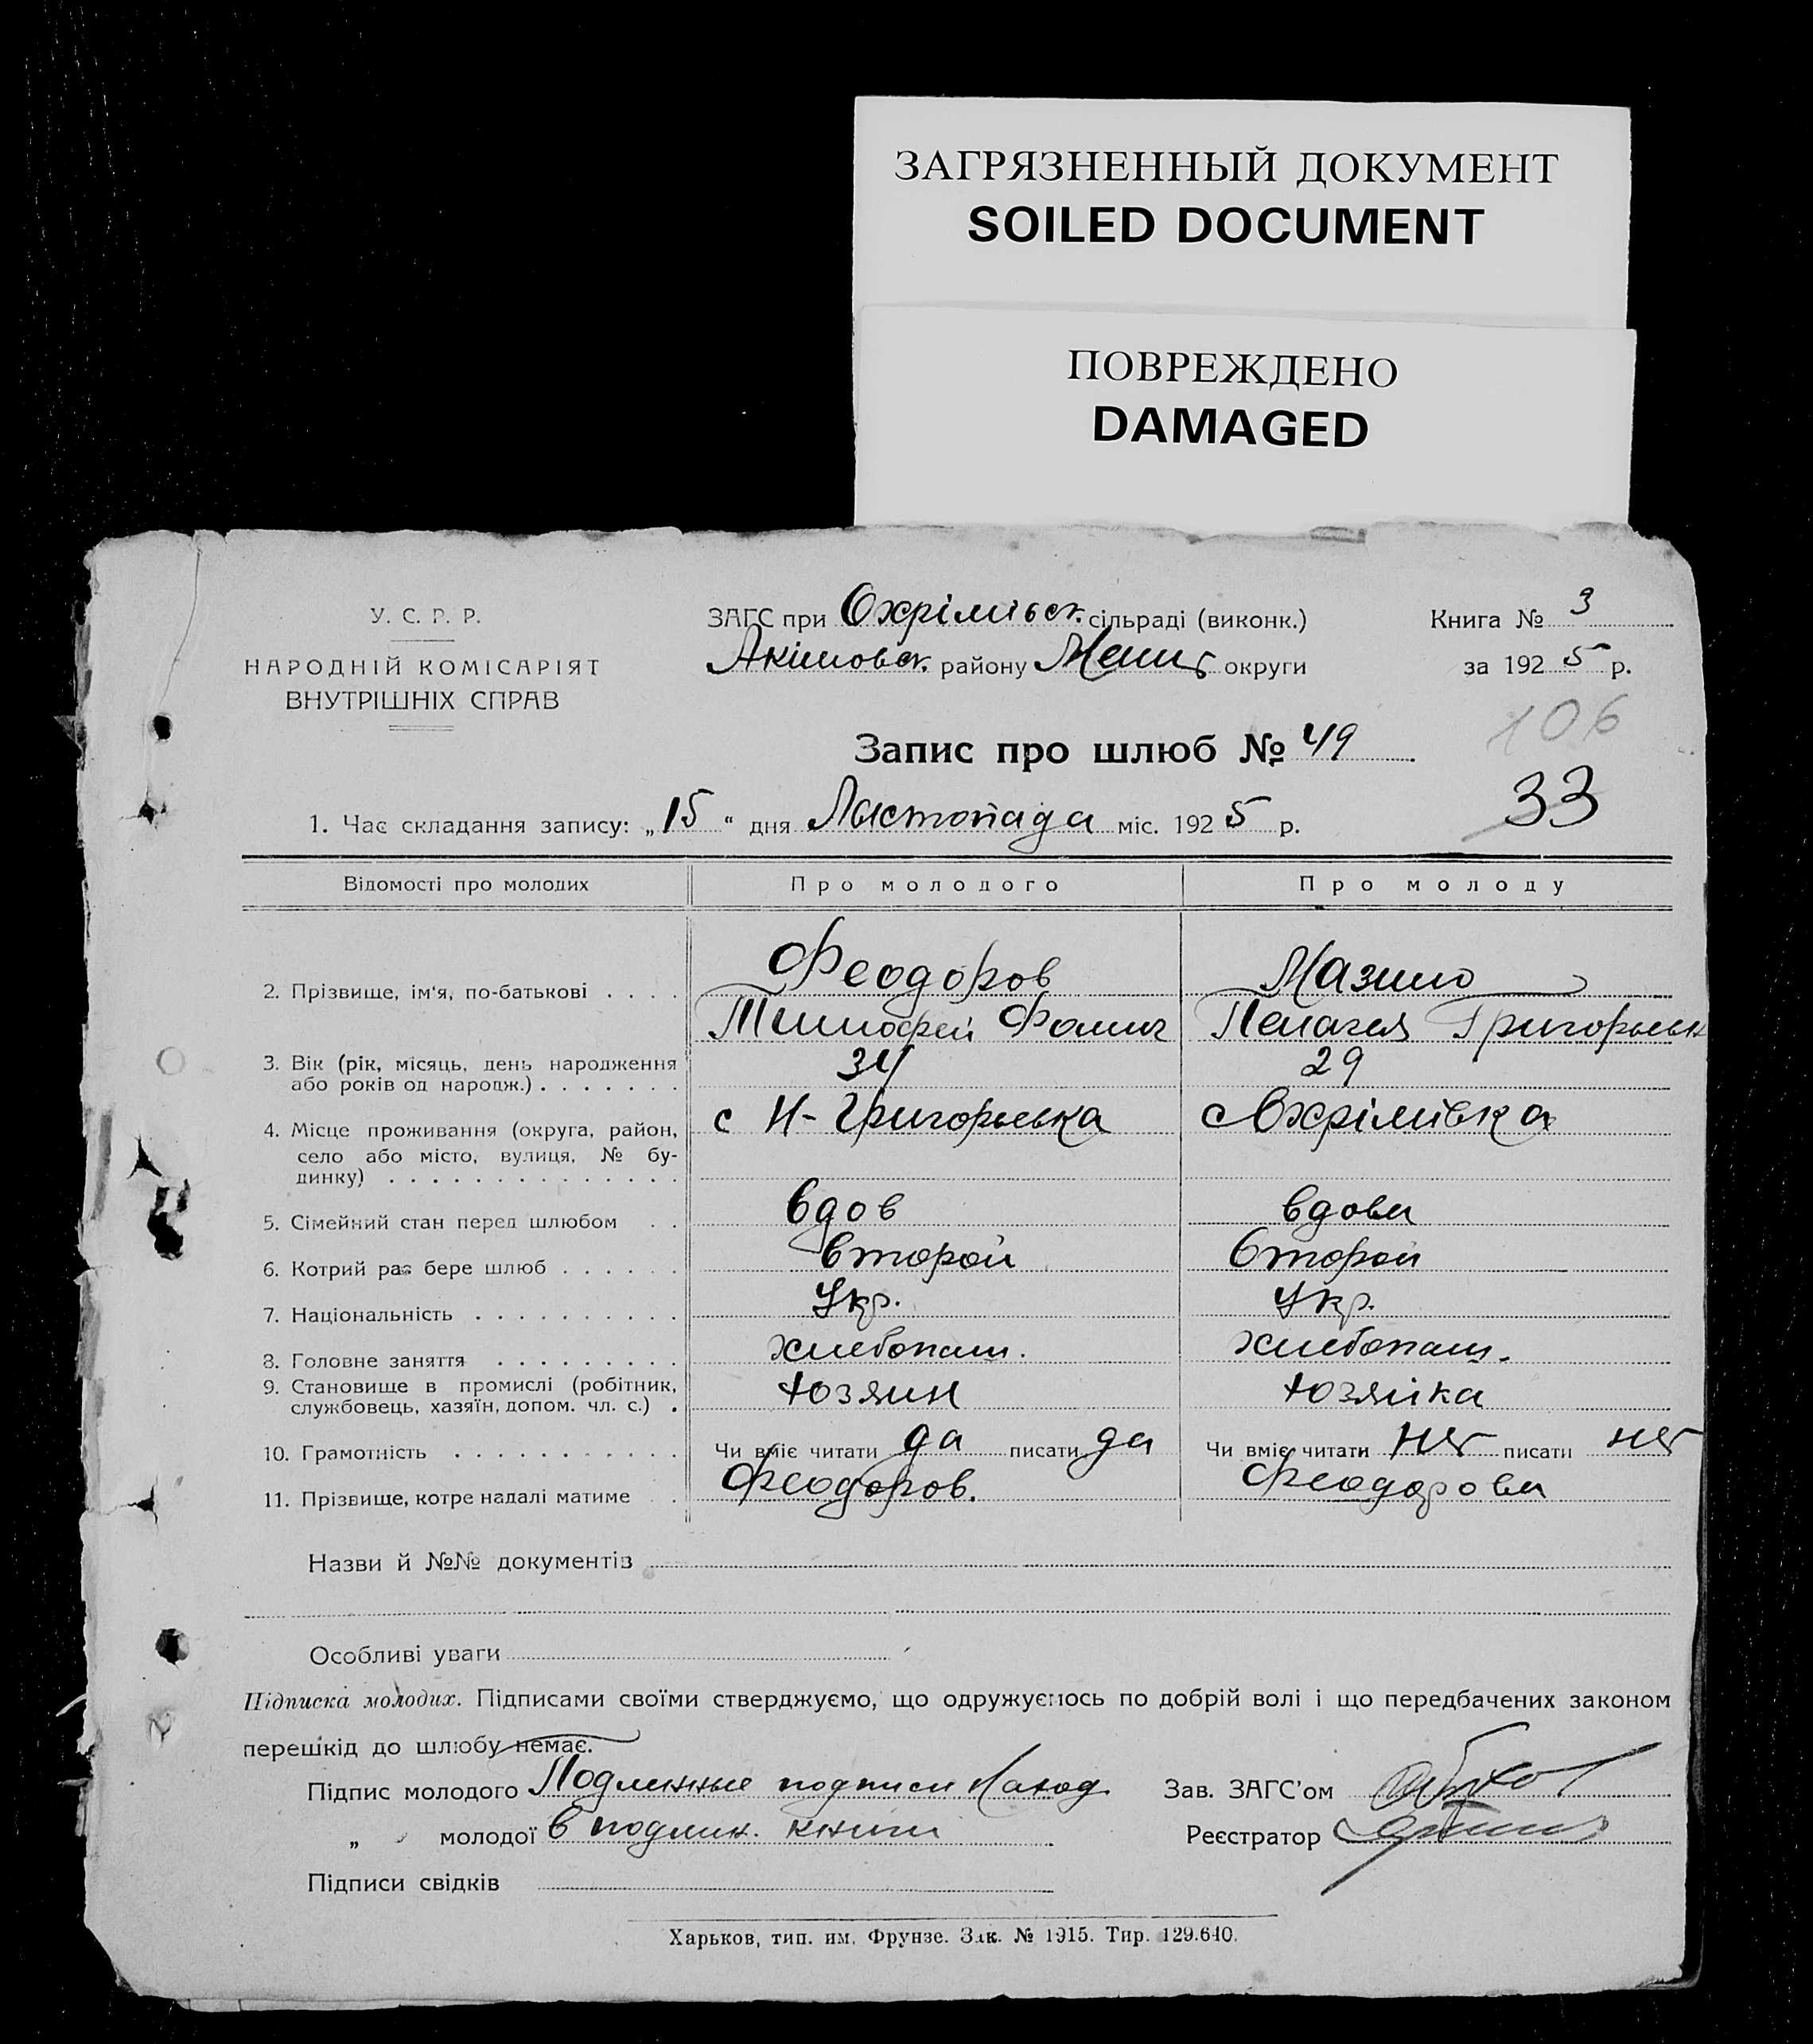 ЗАГРЯЗНЕННЫЙ ДОКУМЕНТ
SOILED DOCUMENT
ПОВРЕЖДЕНО
DAMAGED
У. С. Р. Р.
НАРОДНІЙ КОМІСАРІЯТ
ВНУТРІШНІХ СПРАВ
ЗАГС при Охрімівск. сільраді (виконк.)
Акімовск. району Меліт округи
Книга № 3
за 1925 р.
106
Запис про шлюб № 49
33
1. Час складання запису: „15“ дня Листопада міс. 1925 р.
Відомості про молодих Про молодого Про молоду
2. Прізвище, ім'я, по-батькові . . . . Феодоров Мазило
Тимофей Фомич Пелагея Григорьевн
3. Вік (рік, місяць, день народження 34 29
або років од народж.) . . . . . . .
4. Місце проживання (округа, район, с Н-Григорьевка с Охрімівка
село або місто, вулиця, № бу-
динку) . . . . . . . . . . . . . .
5. Сімейний стан перед шлюбом . . вдов вдова
6. Котрий раз бере шлюб . . . . . . второй второй
7. Національність . . . . . . . . . . Укр. Укр.
8. Головне заняття . . . . . . . . . хлебопаш. хлебопаш.
9. Становище в промислі (робітник, хозяин хозяйка
службовець, хазяїн, допом. чл. с.) .
10. Грамотність . . . . . . . . . . . Чи вміє читати да писати да Чи вміє читати нет писати нет
11. Прізвище, котре надалі матиме . . Феодоров. Феодорова
Назви й №№ документів
Особливі уваги
Підписка молодих. Підписами своїми стверджуємо, що одружуємось по добрій волі і що передбачених законом
перешкід до шлюбу немає.
Підпис молодого Подлинные подписи наход. Зав. ЗАГС'ом
„ молодої в подлин. книги Реєстратор
Підписи свідків
Харьков, тип. им. Фрунзе. Зак. № 1915. Тир. 129.640.